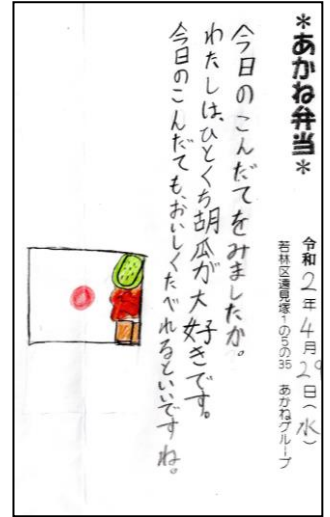 ＊あかね弁当＊
令和2年4月29日（水）
若林区遠見塚1の5の35　あかねグループ
今日のこんだてをみましたか。
わたしは、ひとくち胡瓜が大好きです。
今日のこんだても、おいしくたべれるといいですね。